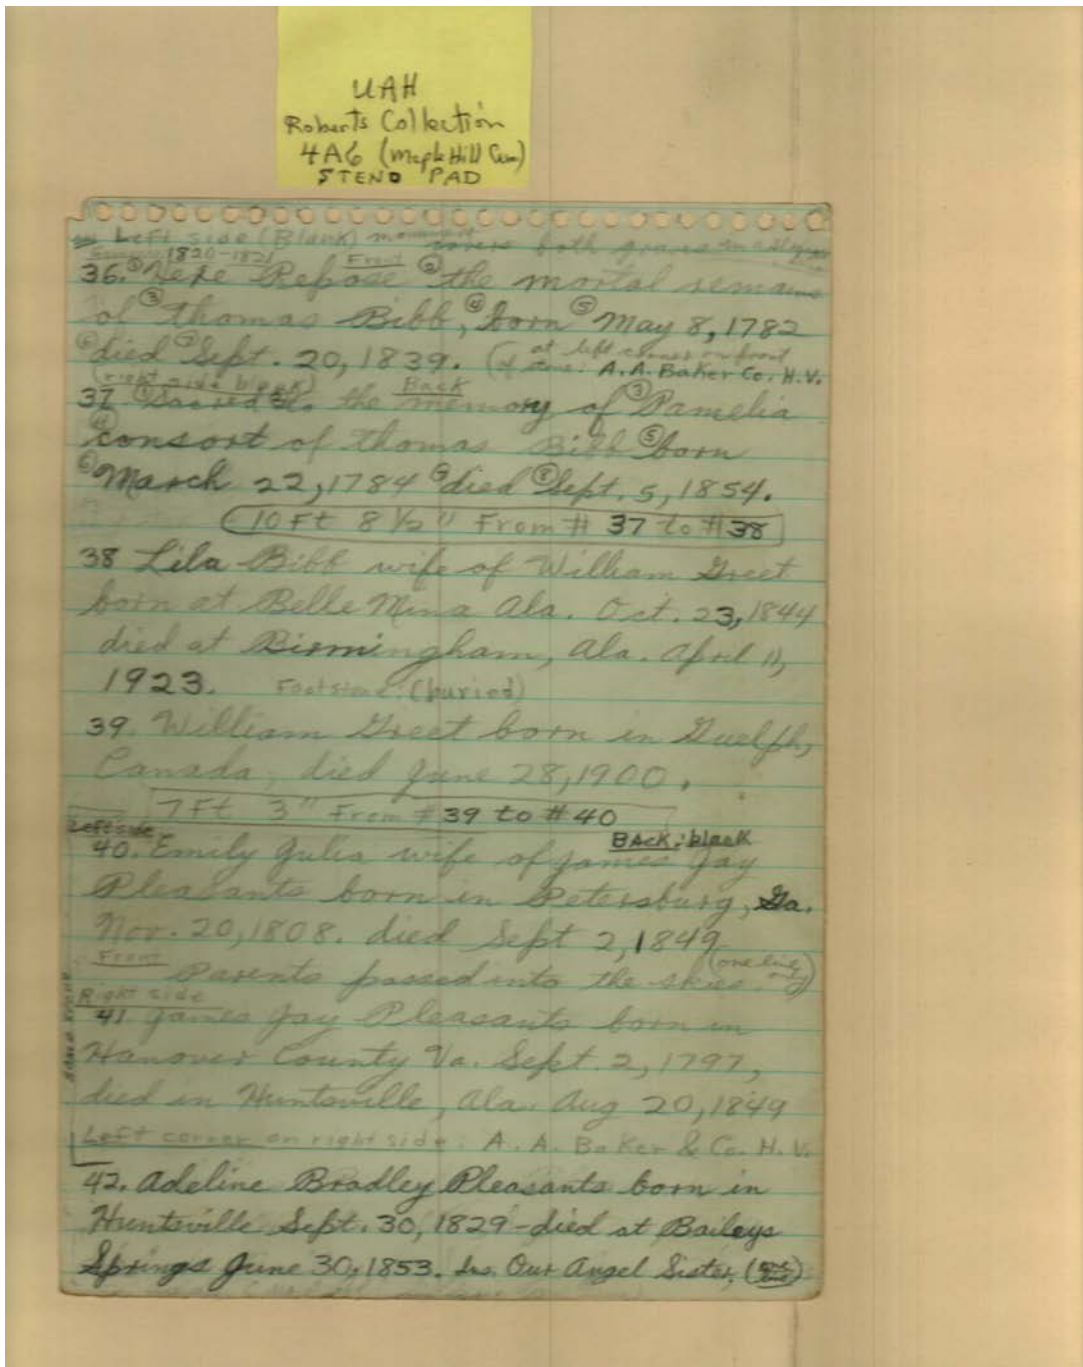 UAH
Roberts Collection
4A6 (Maple Hill Cem)
STENO PAD
Left side (Blank) monument covers both graves
1820-1821 Front
36. ① Here Repose ② the mortal remains
of ③ Thomas Bibb, ④ born ⑤ May 8, 1782
⑥ died ⑦ Sept. 20, 1839. (at left corner on front
of stone: A.A. Baker Co. H.V.
(right side blank) Back
37 ① Sacred to the memory of ③ Pamelia
④ consort of Thomas Bibb ⑤ born
⑥ March 22, 1784 ⑦ died ⑧ Sept. 5, 1854.
10 Ft 8 1/2" From # 37 to # 38
38 Lila Bibb wife of William Greet
born at Belle Mina Ala. Oct. 23, 1844
died at Birmingham, Ala. April 11,
1923. Footstone: (buried)
39. William Greet born in Guelph,
Canada, died June 28, 1900.
7 Ft 3" From # 39 to # 40
Left side BACK: blank
40. Emily Julia wife of James Jay
Pleasants born in Petersburg, Ga.
Nov. 20, 1808. died Sept 2, 1849
Front Parents passed into the skies. (one line only)
Right side
41. James Jay Pleasants born in
Hanover County Va. Sept. 2, 1797,
died in Huntsville, Ala. Aug 20, 1849
Left corner on right side: A. A. Baker & Co. H. V.
42. Adeline Bradley Pleasants born in
Huntsville Sept. 30, 1829 - died at Baileys
Springs June 30, 1853. Ins. Our Angel Sister,